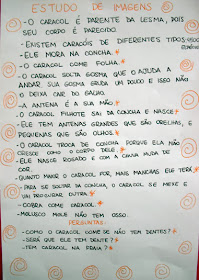 ESTUDO DE IMAGENS
- O CARACOL É PARENTE DA LESMA, POIS
SEU CORPO É PARECIDO
- EXISTEM CARACÓIS DE DIFERENTES TIPOS
- ELE MORA NA CONCHA.
- O CARACOL COME FOLHA.
- O CARACOL SOLTA GOSMA QUE O AJUDA A
ANDAR. SUA GOSMA GRUDA UM POUCO E ISSO NÃO
O DEIXA CAIR DO GALHO.
- A ANTENA É A SUA MÃO.
- O CARACOL FILHOTE SAI DA CONCHA E NASCE
- ELE TEM ANTENAS GRANDES QUE SÃO ORELHAS, E
PEQUENAS QUE SÃO OLHOS.
- O CARACOL TROCA DE CONCHA PORQUE ELA NÃO
CRESCE COMO O CORPO DELE
- ELE NASCE ROSADO E COM A CAUDA MUDA DE
COR.
- QUANTO MAIOR O CARACOL FOR, MAIS MANCHAS ELE TERÁ
- PARA SE SOLTAR DA CONCHA, O CARACOL SE MEXE E
VAI PROCURAR OUTRA.
- COBRA COME CARACOL
- MOLUSCO MOLE NÃO TEM OSSO.
PERGUNTAS:
- COMO O CARACOL COME SE NÃO TEM DENTES?
- SERÁ QUE ELE TEM DENTE?
- TEM CARACOL NA PRAIA?